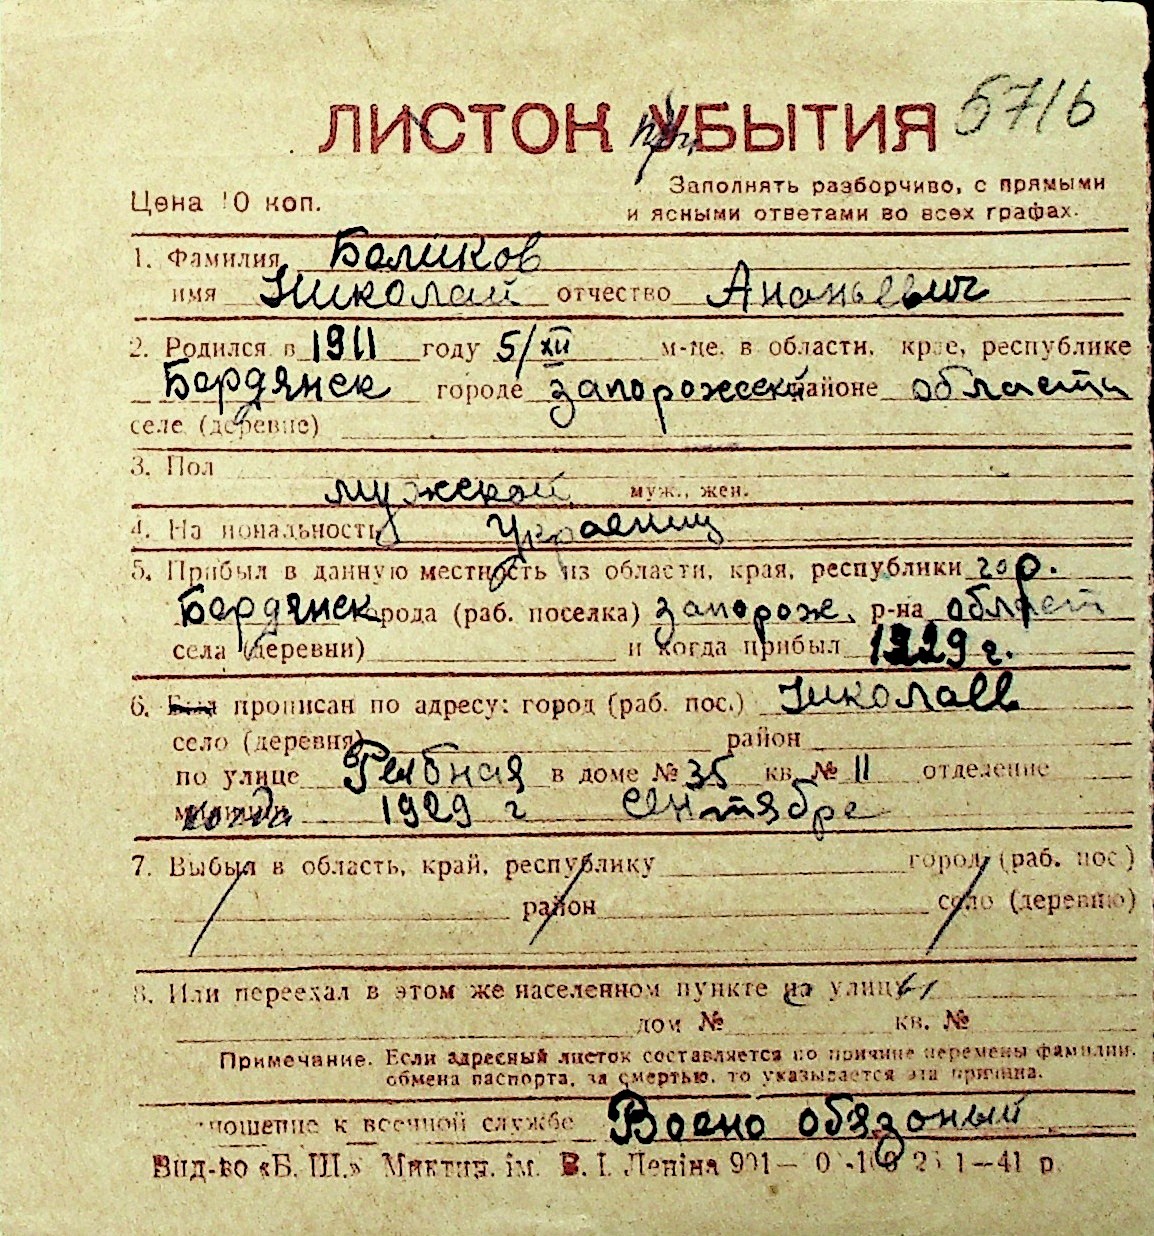 5716
ЛИСТОК УБЫТИЯ
Цена 10 коп.
Заполнять разборчиво, с прямыми
и ясными ответами во всех графах.
1. Фамилия Баликов
имя Николай отчество Ананьевич
2. Родился в 1911 году 5/XII м-це. в области, крае, республике
Бардянск городе запорожской районе области
селе (деревне)
3. Пол
мужской муж., жен.
4. Национальность Украениц
5. Прибыл в данную местность из области, края, республики гор.
Бардянск города (раб. поселка) запорож. р-на област
села (деревни) и когда прибыл 1929 г.
6. Был прописан по адресу: город (раб. пос.) Николаев
село (деревня) район
по улице в доме № 35 кв. № 11 отделение
милиции когда 1929 г Сентябре
7. Выбыл в область, край, республику город (раб. пос)
район село (деревню)
8. Или переехал в этом же населенном пункте на улицу
дом № кв. №
Примечание. Если адресный листок составляется по причине перемены фамилии,
обмена паспорта, за смертью, то указывается эта причина.
ношение к военной службе Воено обязоный
Вид-во «Б. Ш.» Миктип. ім. В. І. Леніна